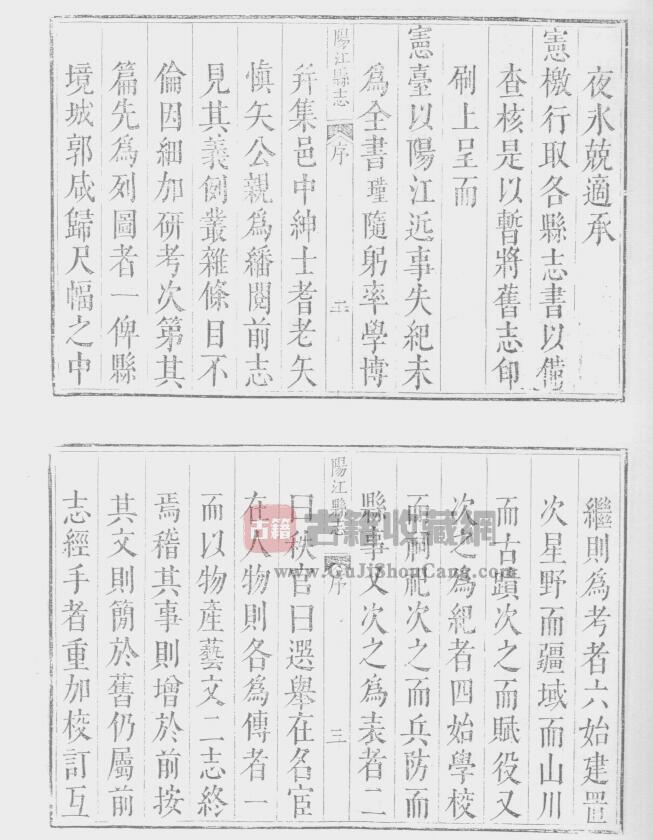 夜永兢適承
憲檄行取各縣志書以備
查核是以暫將舊志印
刷上呈而
憲臺以陽江近事失紀未
為全書瑾隨躬率學博
陽江縣志 序 二
幷集邑中紳士耆老矢
愼矢公親為繙閱前志
見其義例叢雜條目不
倫因細加硏考次第其
篇先為列圖者一俾縣
境城郭咸歸尺幅之中
繼則為考者六始建置
次星野而疆域而山川
而古蹟次之而賦役又
次之為紀者四始學校
而祠祀次之而兵防而
縣事又次之為表者二
陽江縣志 序 三
曰秩官曰選舉在名宦
在人物則各為傳者一
而以物產藝文二志終
焉稽其事則增於前按
其文則簡於舊仍屬前
志經手者重加校訂互
古籍 古籍收藏網
www.GuJiShouCang.com